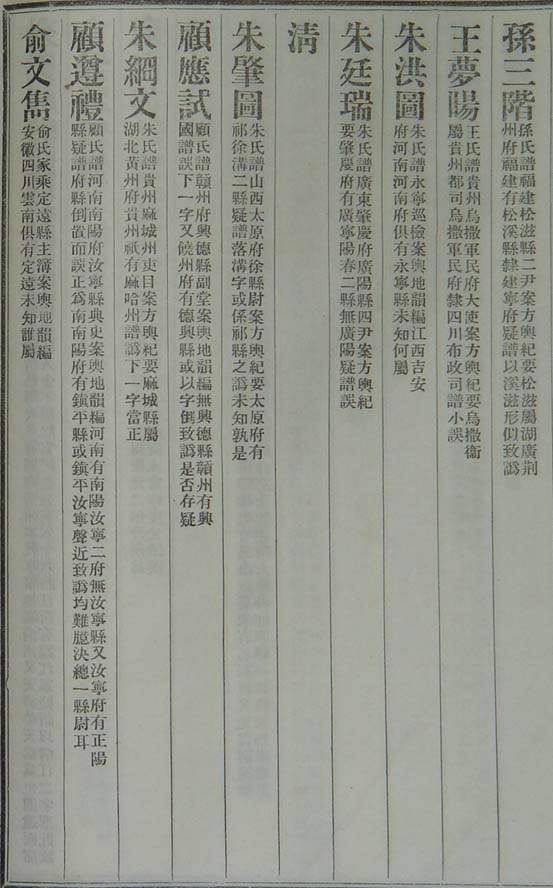 孫三階 孫氏譜福建松滋縣二尹案方輿紀要松滋屬湖廣荆
州府福建有松溪縣隸建寧府疑譜以溪滋形似致譌
王夢陽 王氏譜貴州烏撒軍民府大使案方輿紀要烏撒衞
屬貴州都司烏撒軍民府隸四川布政司譜小誤
朱洪圖 朱氏譜永寧巡檢案輿地韻編江西吉安
府河南河南府俱有永寧縣未知何屬
朱廷瑞 朱氏譜廣東肇慶府廣陽縣四尹案方輿紀
要肇慶府有廣寧陽春二縣無廣陽疑譜誤
淸
朱肇圖 朱氏譜山西太原府徐縣尉案方輿紀要太原府有
祁徐溝二縣疑譜落溝字或係祁縣之譌未知孰是
顧應試 顧氏譜贛州府興德縣副堂案輿地韻編無興德縣贛州有興
國譜誤下一字又饒州府有德興縣或以字倒致譌是否存疑
朱綱文 朱氏譜貴州麻城州吏目案方輿紀要麻城縣屬
湖北黃州府貴州祇有麻哈州譜譌下一字當正
顧遵禮 顧氏譜河南南陽府汝寧縣典史案輿地韻編河南有南陽汝寧二府無汝寧縣又汝寧府有正陽
縣疑譜府縣倒置而誤正爲南南陽府有鎮平縣或鎮平汝寧聲近致譌均難臆決總一縣尉耳
俞文雋 俞氏家乘定遠縣主簿案輿地韻編
安徽四川雲南俱有定遠未知誰屬